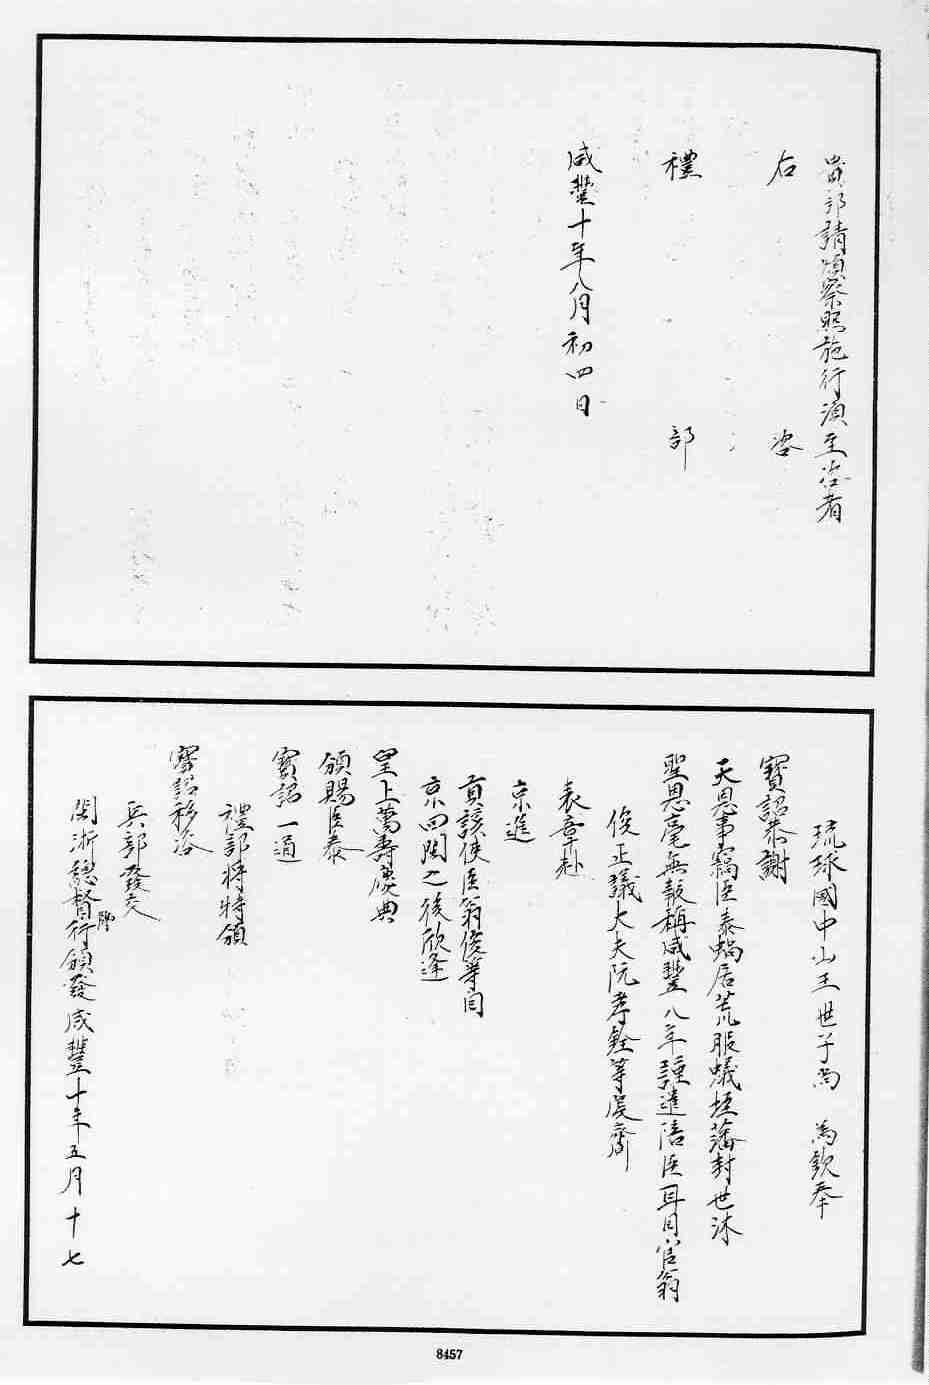 貴部請煩察照施行須至咨者
右咨
禮部
咸豐十年八月初四日
琉球國中山王世子尚　為欽奉
寶詔恭謝
天恩事竊臣泰蝸居荒服蟻垤藩封世沐
聖恩毫無報稱咸豐八年謹遣陪臣耳目官翁
俊正議大夫阮孝銓等虔齎
表章赴
京進
貢該使臣翁俊等自
京回閩之後欣逢
皇上萬壽慶典
頒賜臣泰
寶詔一道
禮部將特頒
寶詔移咨
兵部發交
閩浙總督衙行頒發咸豐十年五月十七
8457